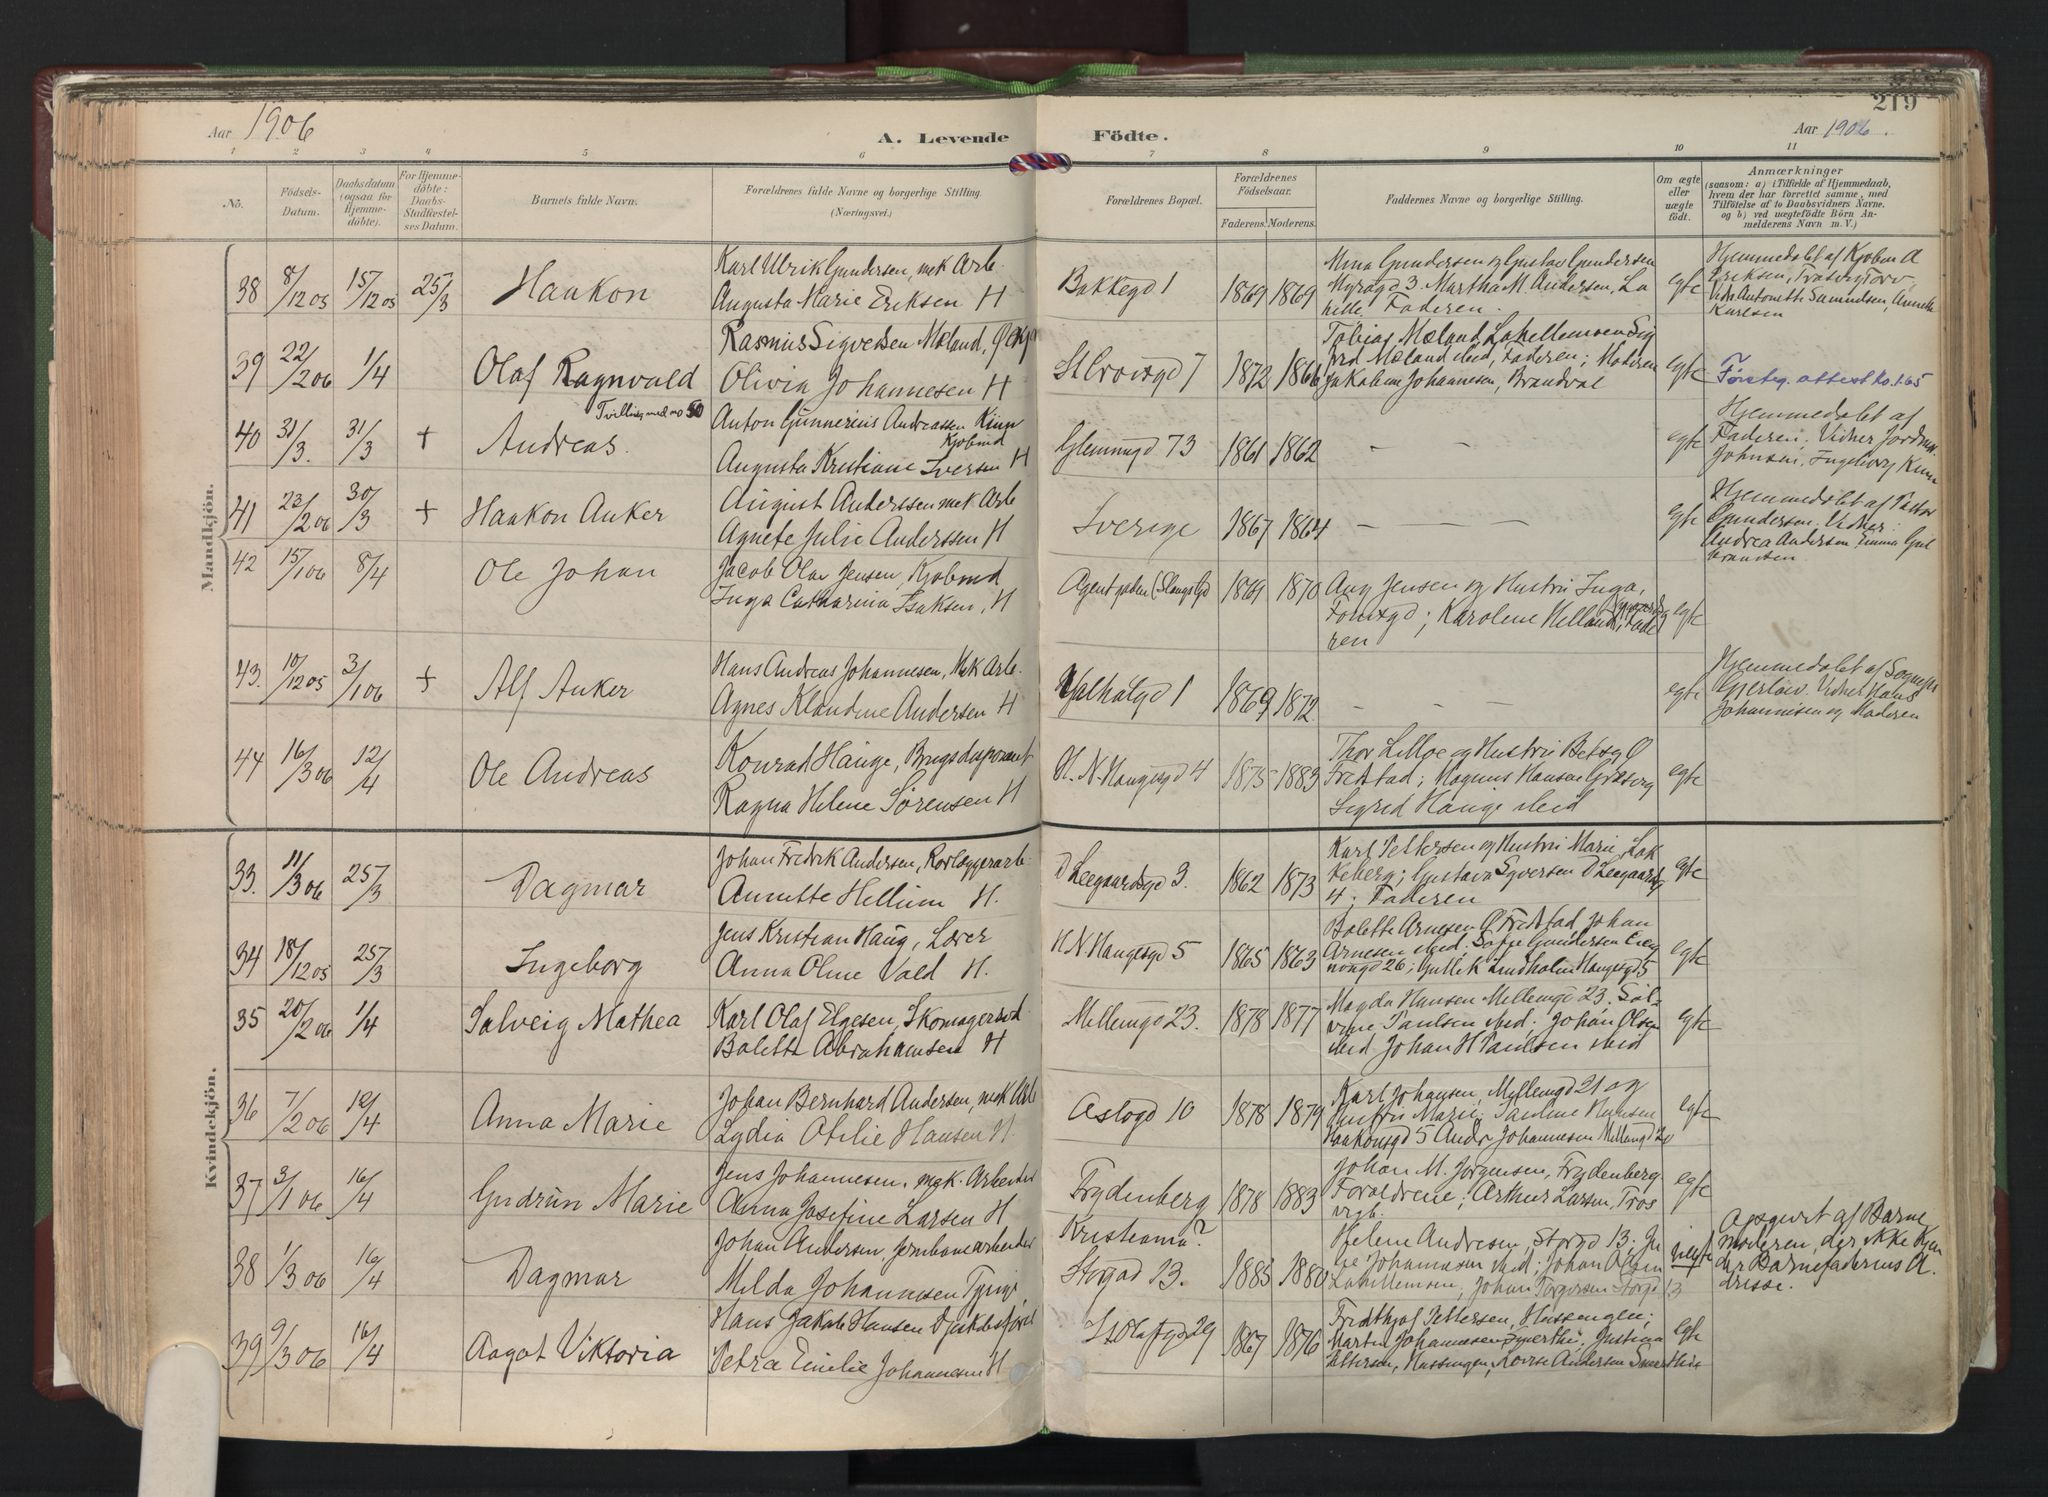 219
Aar 1906
A. Levende Födte.
Aar 1906.
1 2 3 4 5 6 7 8 9 10 11
No.
Födsels-Datum.
Daabsdatum (ogsaa for Hjemmedöbte).
For Hjemmedöbte: Daabs-Stadfæstelses Datum.
Barnets fulde Navn.
Forældrenes fulde Navne og borgerlige Stilling. (Næringsvei.)
Forældrenes Bopæl.
Forældrenes Födselsaar.
Faderens. Moderens.
Faddernes Navne og borgerlige Stilling.
Om ægte eller uægte födt.
Anmærkninger
(saasom: a) i Tilfælde af Hjemmedaab,
hvem der har forrettet samme, med
Tilföielse af to Daabsvidners Navne.
og b) ved uægtefödte Börn An-
melderens Navn m. V.)
Mandkjön.
38 8/12 05 15/12 05 25/3 Haakon
Karl Ulrik Gundersen, mek Arb.
Augusta Marie Eriksen H
Bakkegd 1 1869 1869
Mina Gundersen og Gustav Gundersen
Myragd 3. Martha M Andersen, La
hille. Faderen.
egte
Hjemmedøbt af Kjøbm A
Eriksen, Trosvig Torv,
Vidn Antonette Samuelsen, Annette
Karlsen
39 22/2 06 1/4 Olaf Ragnvald
Rasmus Sigvertsen Mæland,
Olivia Johannesen H
St Croixgd 7 1872 1866
Tobias Mæland, Lahellemoen Sig
frid Mæland ibid, Faderen; Moderen
Jakobine Johannesen, Brandval
egte
attest No. 1.65
40 31/3. 31/3 + Andreas.
Tvilling med no 50
Anton Gunnerius Andreassen Kiin
Kjøbmd
Augusta Kristiane Iversen H
Glemmegd 73 1861 1862
– – –
egte
Hjemmedøbt af
Faderen. Vidner Jordm.
Johnsen, Ingeborg
41 23/2 06 30/3 + Haakon Anker
August Anderssen mek Arb
Agnete Julie Anderssen H
Sverige 1867 1864
– – –
egte
Hjemmedøbt af Pastor
Gundersen. Vidner:
Andrea Andersen Emma Gul
brandsen.
42 15/1 06 8/4 Ole Johan
Jacob Olav Jensen, Kjøbmd
Inga Catharina Isaksen, H
Agentgaden 1869 1870
Aug Jensen og Hustru Inga,
; Karolene Helland, Fade
ren
egte
43. 10/12 05 3/1 06 + Alf Anker
Hans Andreas Johannesen, Mek Arb.
Agnes Klaudine Andersen H
Valhalgd 1 1869 1872.
– – –
egte
Hjemmedøbt af Sognepr
Gjerløw. Vidner Hans
Johannesen og Moderen
44 16/3 06 12/4 Ole Andreas
Konrad Hauge, Brugsdisponent
Ragna Helene Sørensen H
H. N. Haugesgd 4 1875 1883
Thor Lilloe og Hustru Betsy Ø
Fredstad; Magnus Hansen
Sigrid Hauge ibid
egte
Kvindekjön.
33. 11/3 06 25/3 Dagmar
Johan Fredrik Andersen, Rørlæggerarb.
Annette Hellum H.
D Leegaardsgd 3. 1862 1873
Karl Pettersen og Hustru Marie, Lak
keberg; Gustava Syversen D Leegaardsg
4; Faderen
egte
34 18/12 05 25/3 Ingeborg
Jens Kristian Haug, Lærer
Anna Oline Vold H.
H N Haugesgd 5 1865 1863
Bolette Arnesen Ø Fredstad, Johan
Arnesen ibid, Sofie Gundersen
26; Gullik Lindholm Haugesgd 5
egte
35 20/2 06 1/4 Solveig Mathea
Karl Olaf Elgesen, Skomagersvd.
Bolette Abrahamsen H
Mellemgd 23. 1878 1877
Magda Hansen Mellemgd 23. Sol-
Paulsen ibid; Johan Olsen
ibid Johan H Paulsen ibid
egte
36 7/2 06 12/4 Anna Marie
Johan Bernhard Andersen, mek Arb
Lydia Otilie Hansen H.
Astagd 10 1878 1879
Karl Johansen, Mellemgd 21 og
Hustru Marie; Pauline Hansen
Haakonsgd 5 Andr Johannesen Mellemgd 20
egte
37 3/1 06 16/4 Gudrun Marie
Jens Johannesen, mek. Arbeider
Anna Josefine Larsen H
Frydenberg 1878 1883
Johan M. Jørgensen, Frydenberg
Forældrene; Arthur Larsen, Tros
vigb.
egte
38 1/3 06 16/4 Dagmar
Johan Andersen, Jernbanearbeider
Milda Johannesen
Kristiania?
Storgd 13. 1885 1880
Helene Andresen, Storgd 13; In
ge Johannesen ibid; Johan Olsen
Lahellemoen, Johan Torgersen Storgd 13
uegte
Opgivet af Barne
moderen, der ikke Kjen
der Barnefaderens A
dresse.
39 9/3 06 16/4 Aagot Viktoria
Hans Jakob Hansen
Petra Emilie Johannesen H
St Olafsgd 29 1867 1876
Fridthjof Pettersen, Hassengen;
Martin Johannesen, Justina
Pettersen, Hassingen, Andersen
egte